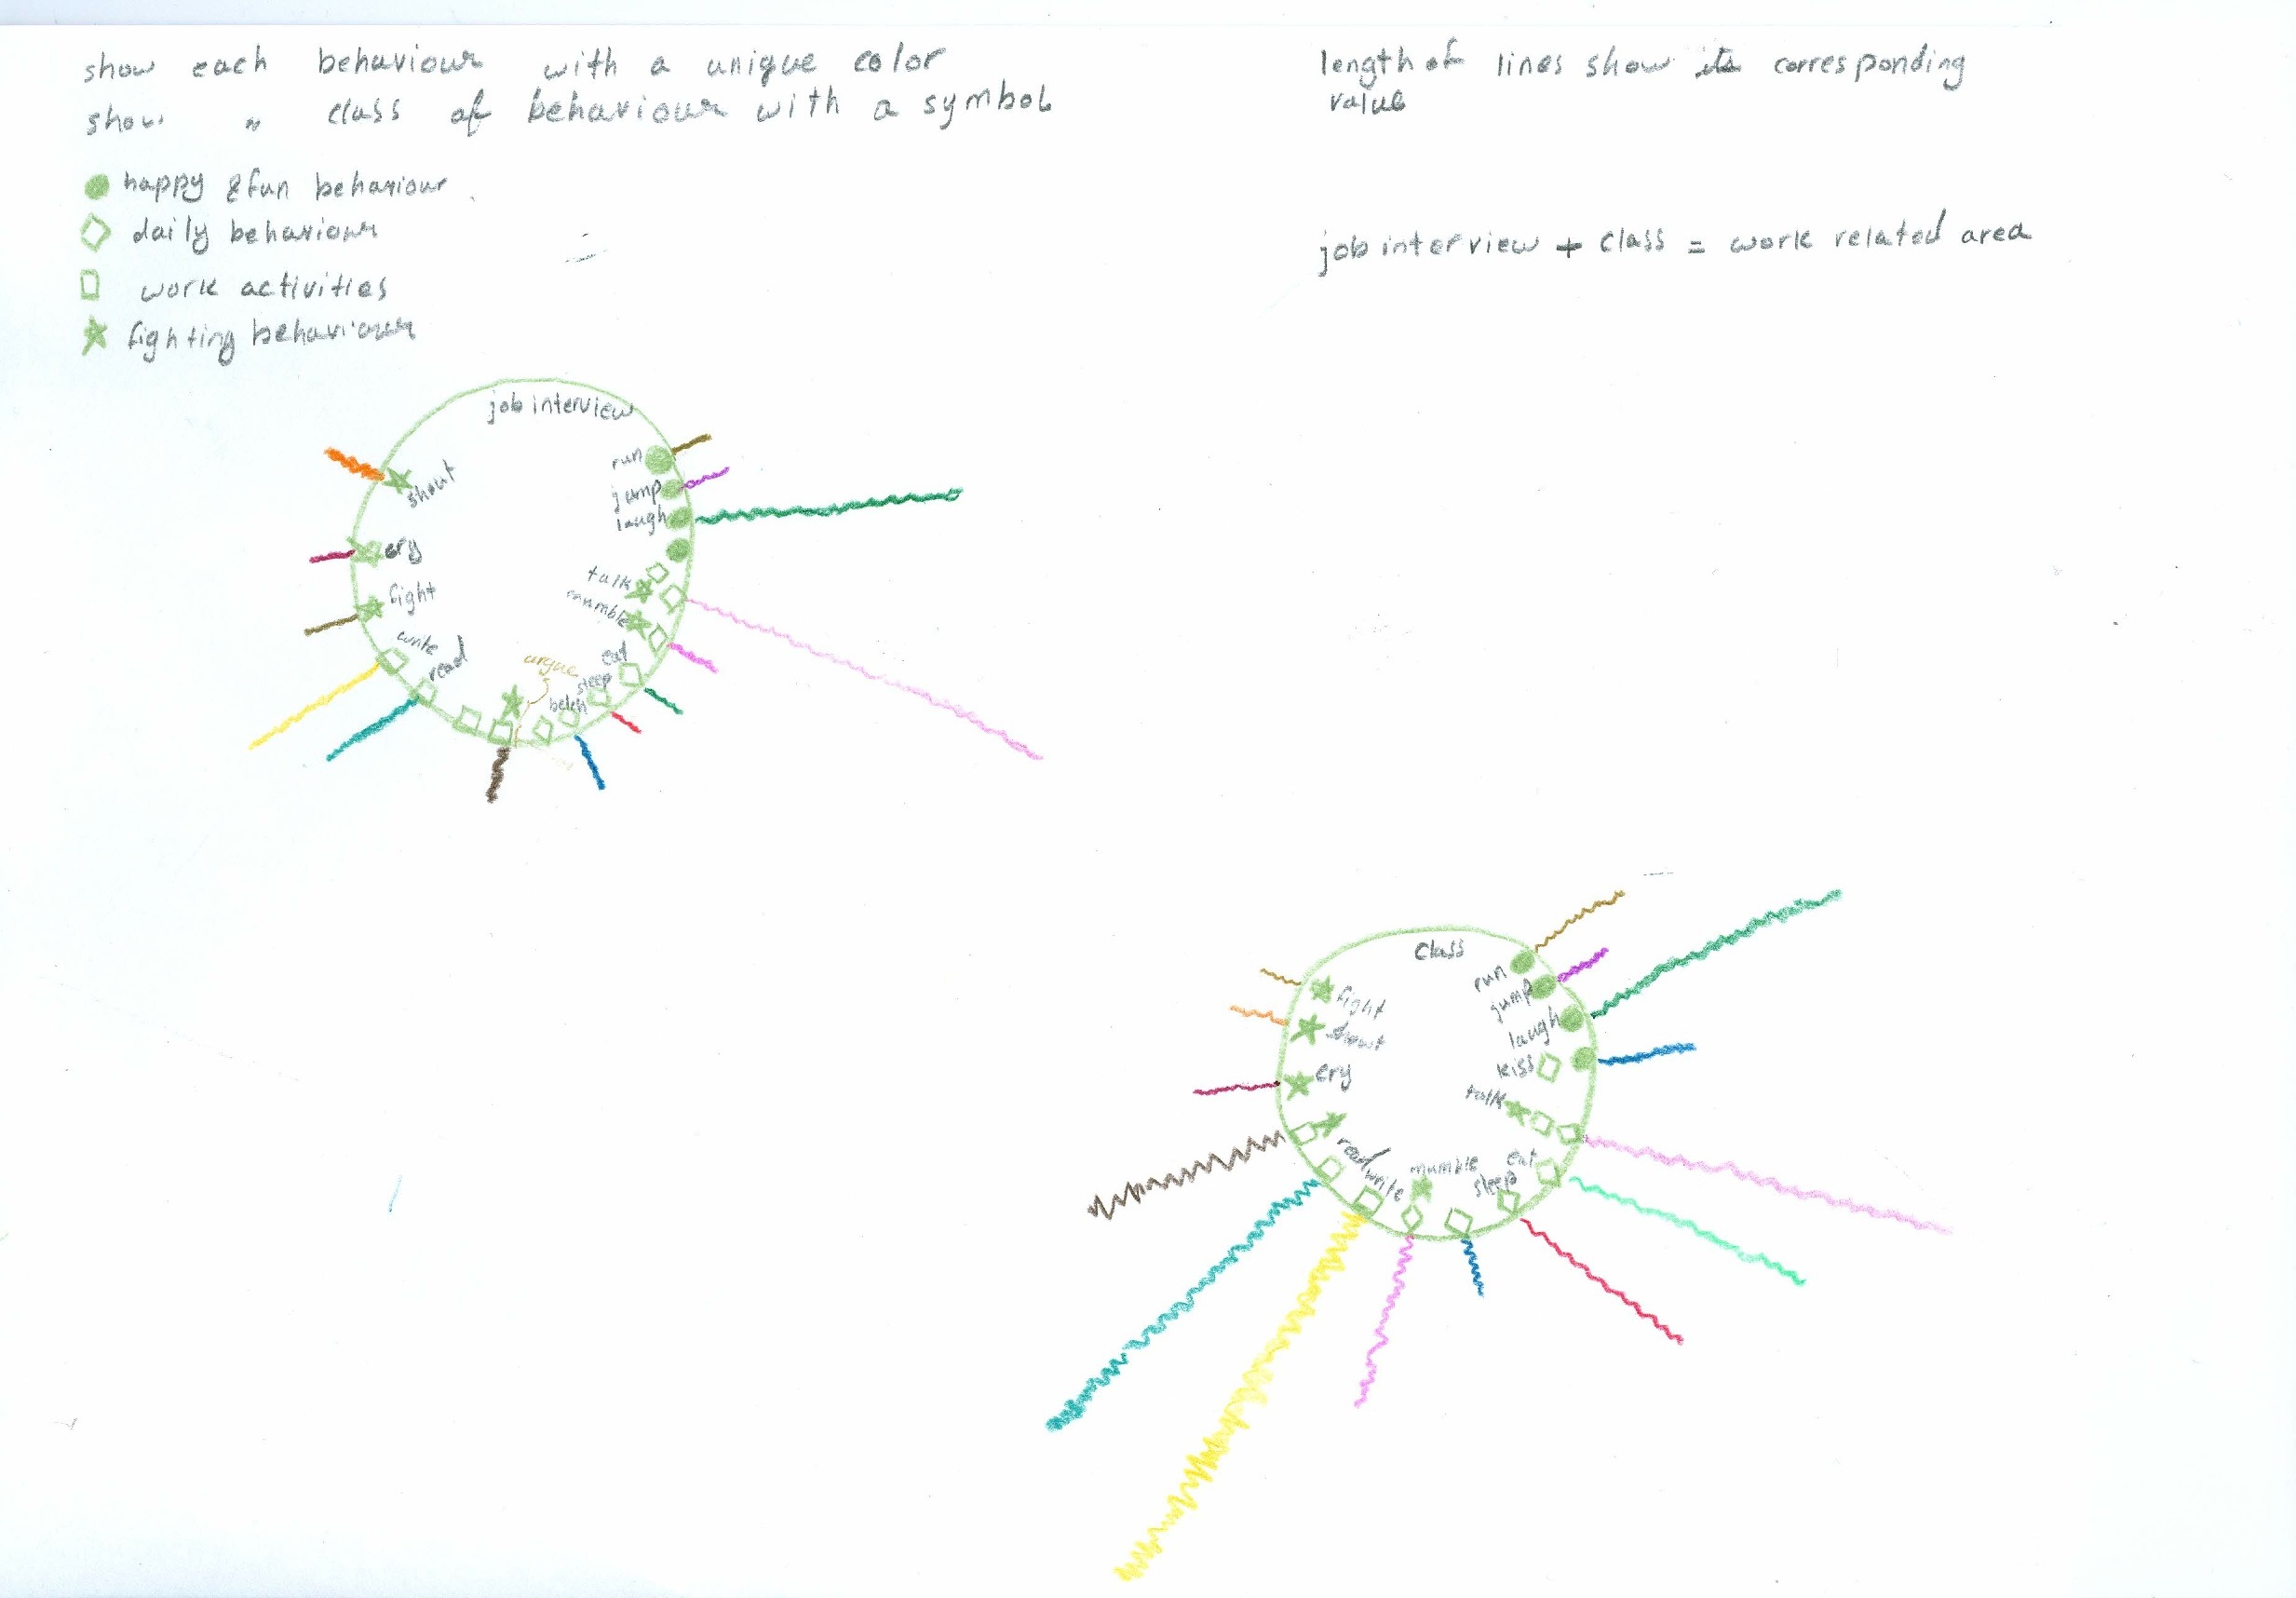 show each behaviour with a unique color
show " class of behaviour with a symbol
length of lines show its corresponding
value
happy & fun behaviour
daily behaviour
work activities
fighting behaviour
job interview + class = work related area
job interview
run
jump
laugh
talk
mumble
eat
sleep
belch
argue
read
write
fight
cry
shout
class
run
jump
laugh
kiss
talk
eat
sleep
mumble
write
read
cry
shout
fight